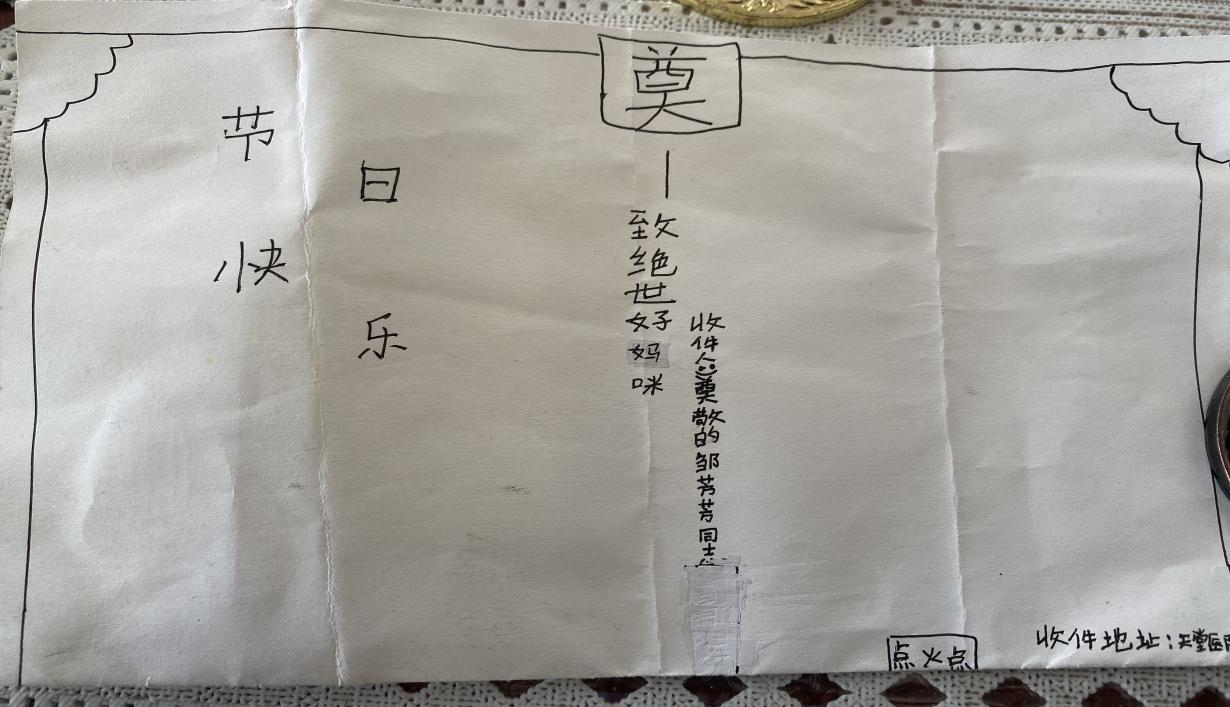 奠
节日快乐
—致绝世好妈咪
收件人:奠敬的邹芳芳同志
点火点
收件地址:天堂